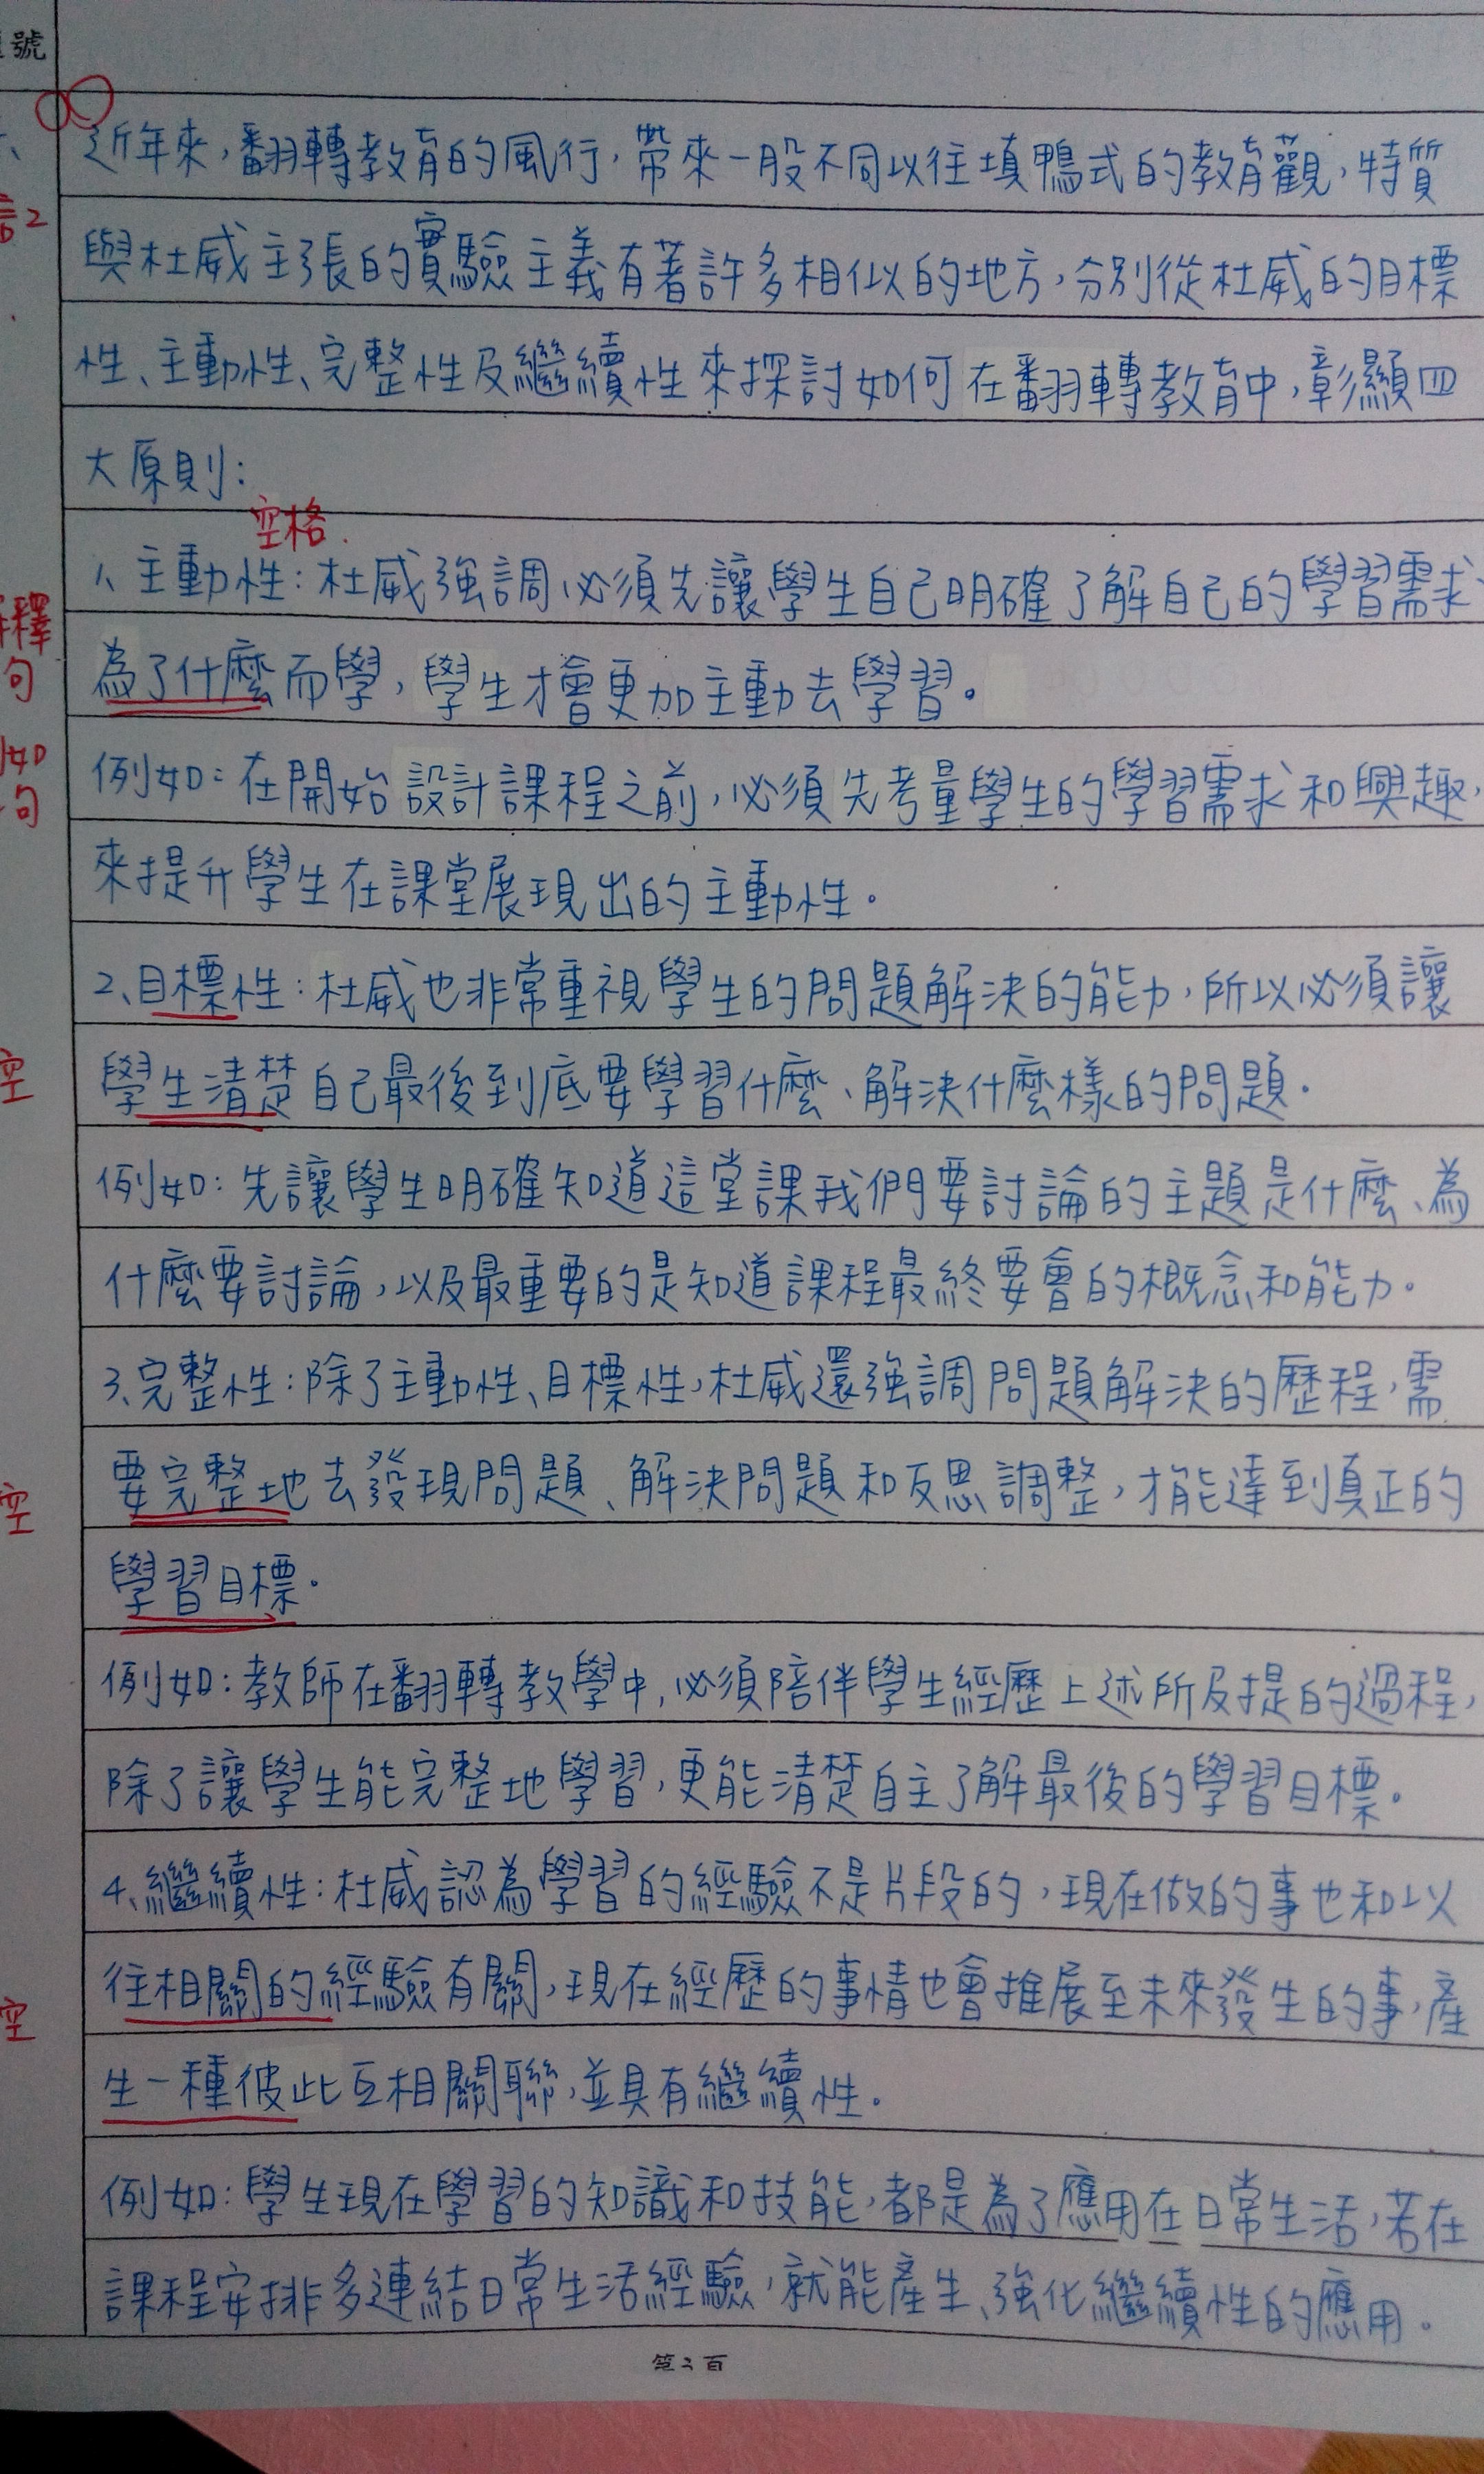 號
近年來,翻轉教育的風行,帶來一股不同以往填鴨式的教育觀,特質
與杜威主張的實驗主義有著許多相似的地方,分別從杜威的目標
性、主動性、完整性及繼續性來探討如何在翻轉教育中,彰顯四
大原則:
空格.
1、主動性:杜威強調必須先讓學生自己明確了解自己的學習需求
為了什麼而學,學生才會更加主動去學習。
句
例如:在開始設計課程之前,必須先考量學生的學習需求和興趣,
如
句
來提升學生在課堂展現出的主動性。
2、目標性:杜威也非常重視學生的問題解決的能力,所以必須讓
學生清楚自己最後到底要學習什麼、解決什麼樣的問題.
空
例如:先讓學生明確知道這堂課我們要討論的主題是什麼、為
什麼要討論,以及最重要的是知道課程最終要會的概念和能力。
3、完整性:除了主動性、目標性,杜威還強調問題解決的歷程,需
要完整地去發現問題、解決問題和反思調整,才能達到真正的
空
學習目標.
例如:教師在翻轉教學中,必須陪伴學生經歷上述所及提的過程,
除了讓學生能完整地學習,更能清楚自主了解最後的學習目標。
4、繼續性:杜威認為學習的經驗不是片段的,現在做的事也和以
往相關的經驗有關,現在經歷的事情也會推展至未來發生的事,產
空
生一種彼此互相關聯,並具有繼續性。
例如:學生現在學習的知識和技能,都是為了應用在日常生活,若在
課程安排多連結日常生活經驗,就能產生、強化繼續性的應用。
第3頁